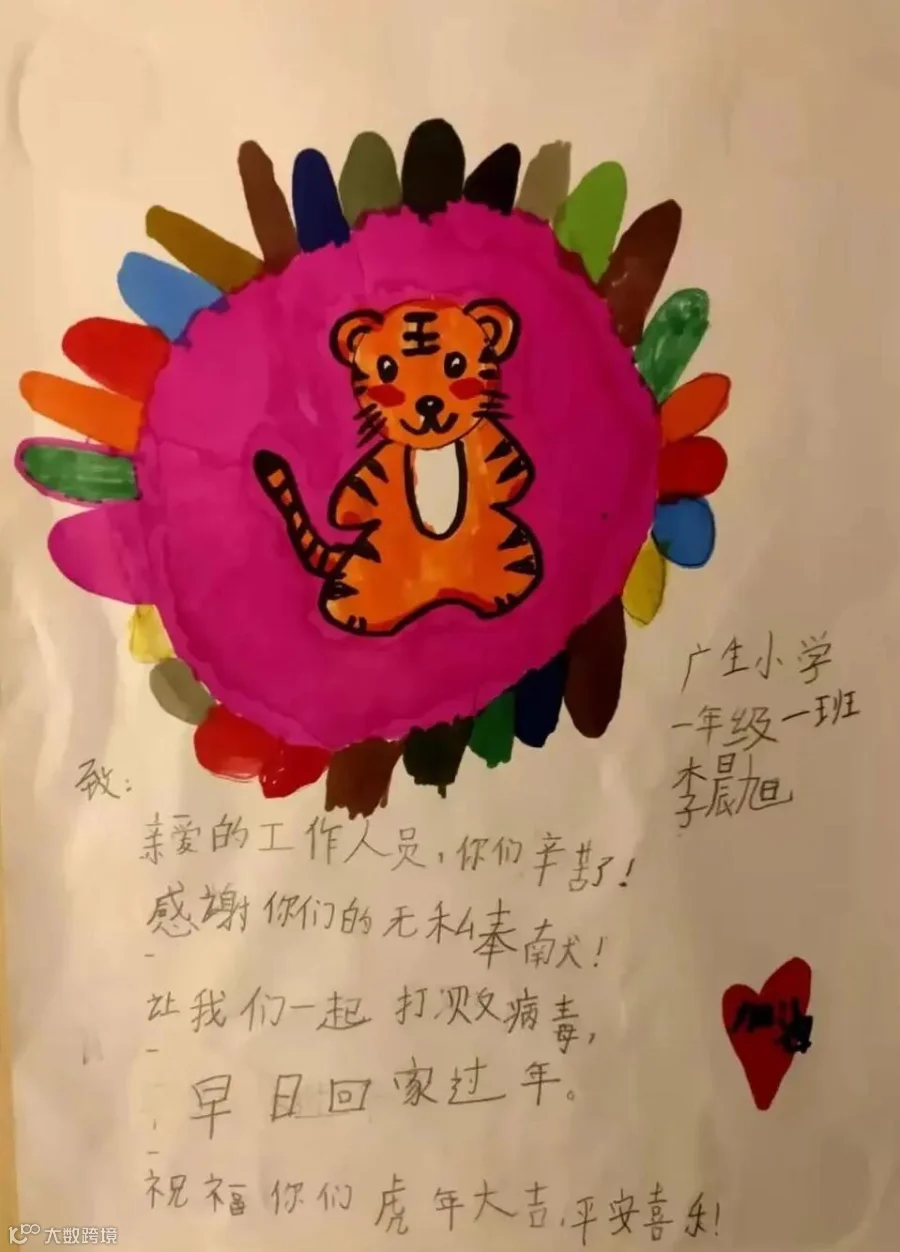 王
广生小学
一年级一班
李晨旭
致:
亲爱的工作人员,你们辛苦了!
感谢你们的无私奉献!
让我们一起打败病毒,
早日回家过年。
加油
祝福你们虎年大吉,平安喜乐!
大数跨境